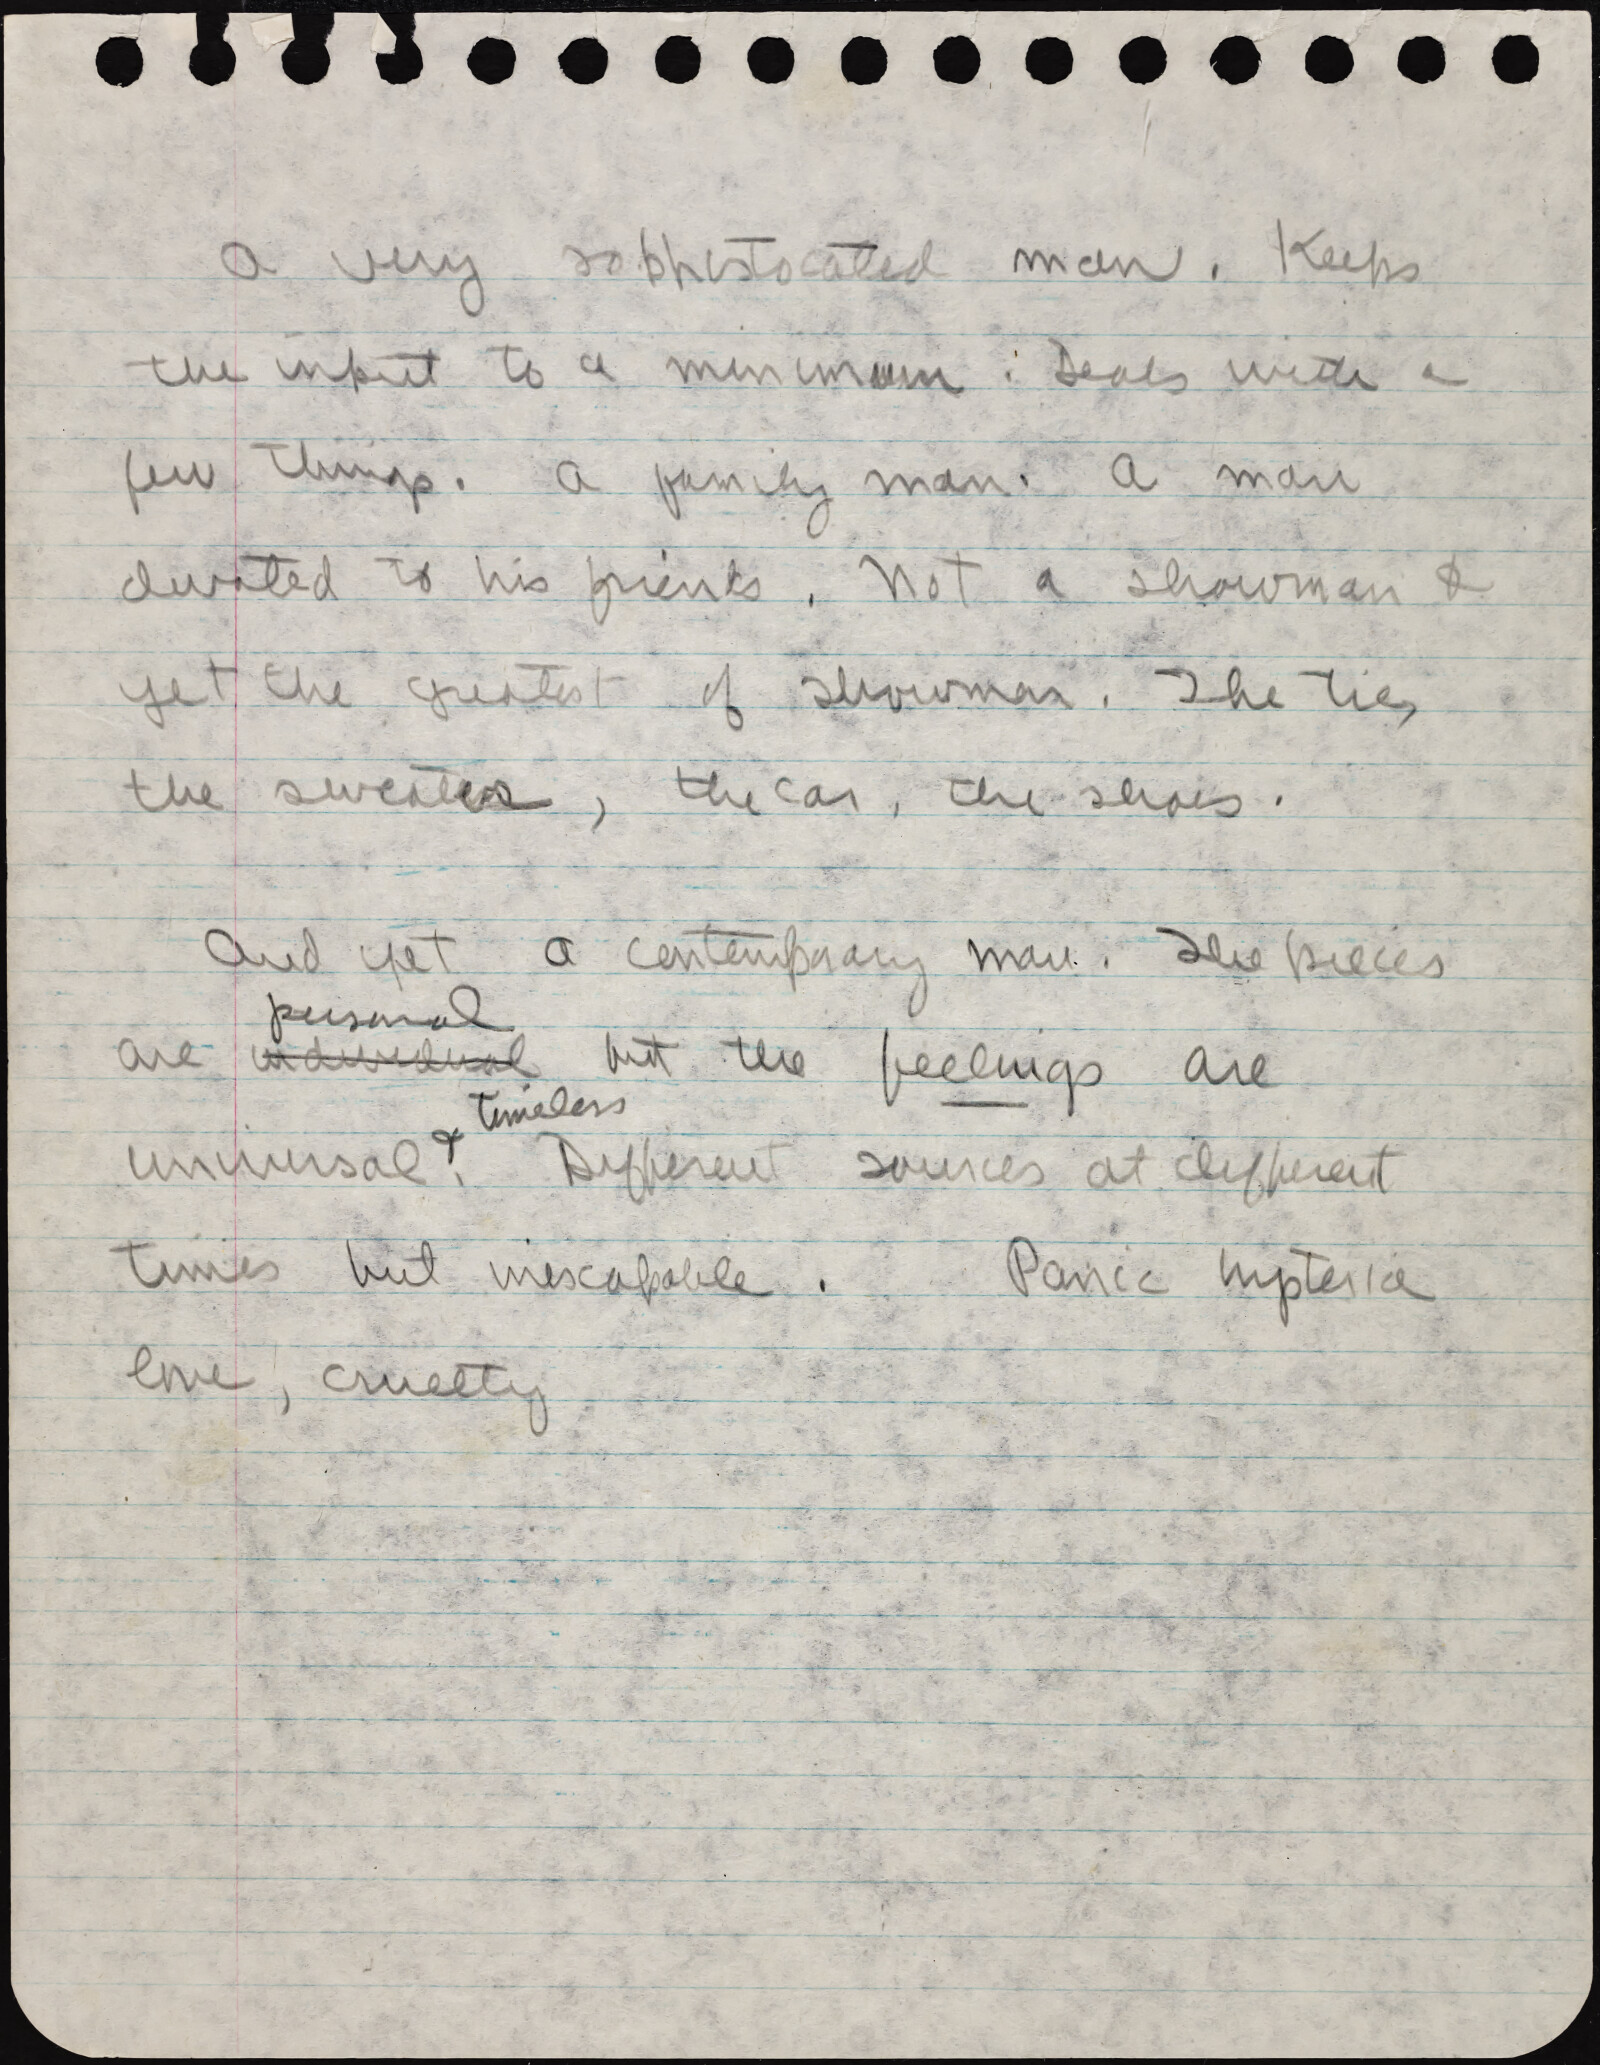 A very sophistocated man. Keeps
the input to a minimum. Deals with a
few things. A family man. A man
devoted to his friends. Not a showman &
yet the greatest of showman. The tie,
the sweater, the car, the shoes.
And yet a contemporary man. The pieces
personal
are individual but the feelings are
& timeless
universal. Different sources at different
times but inescapable. Panic hysteria
love, cruelty